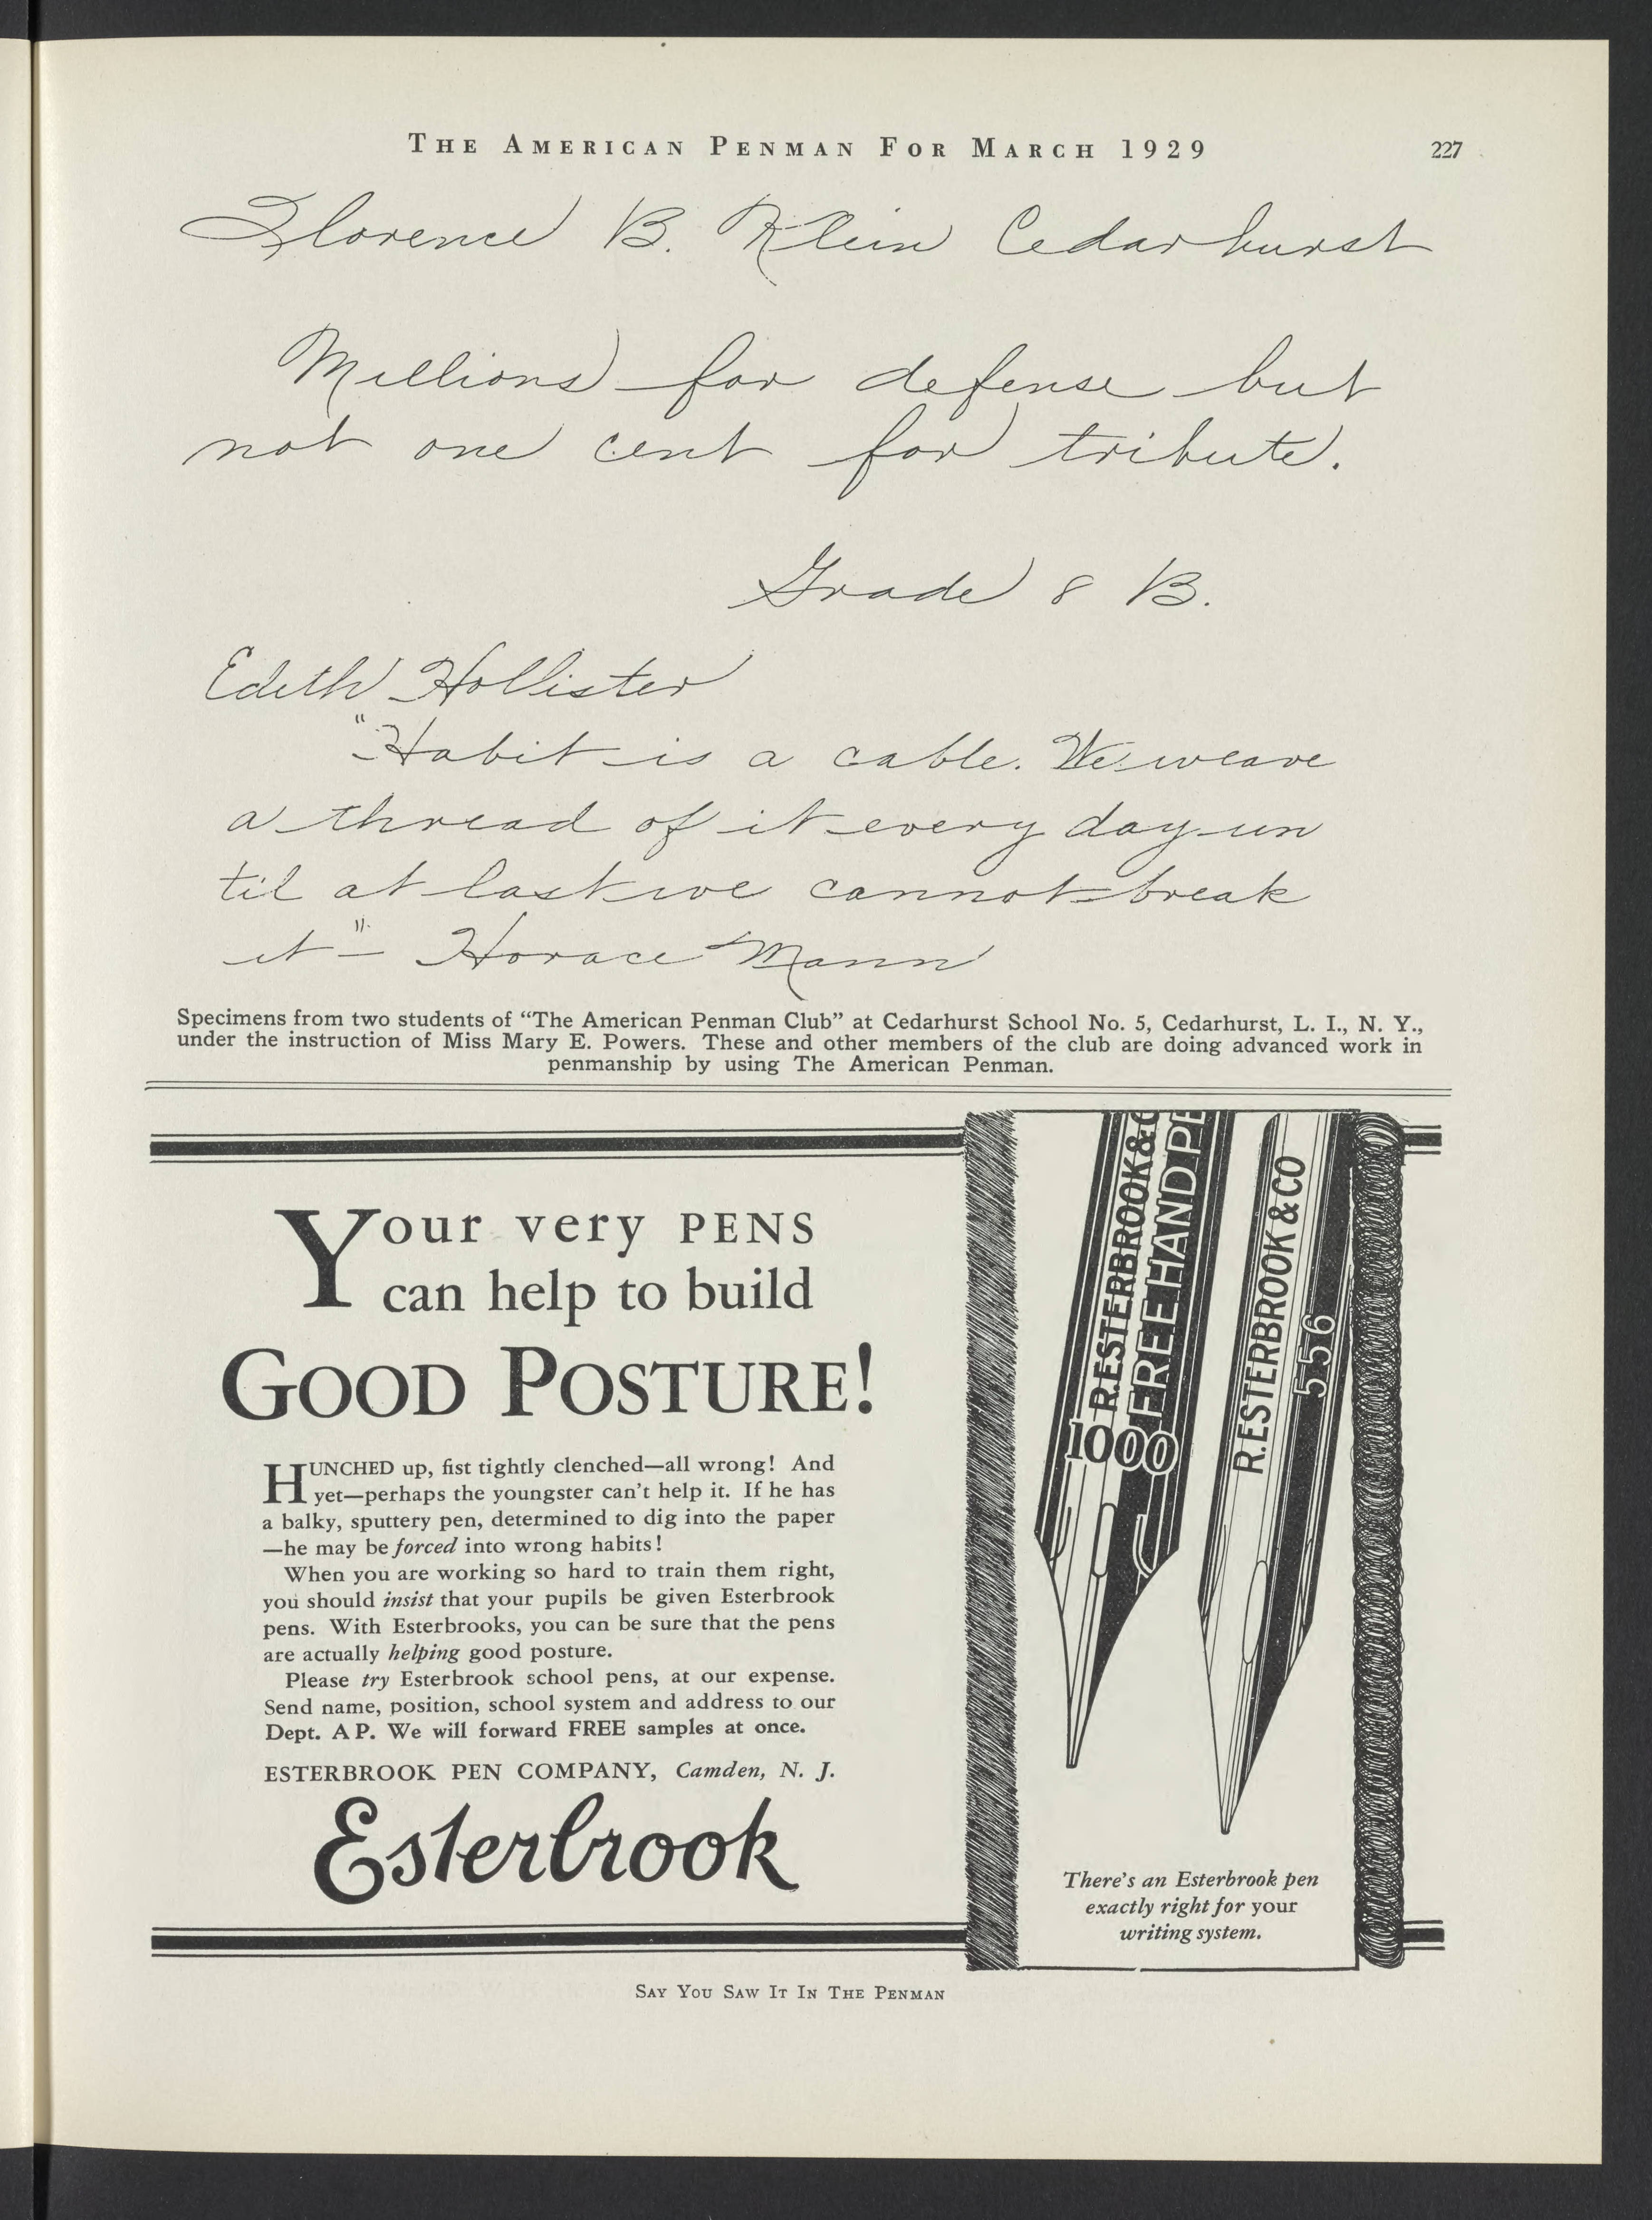 THE AMERICAN PENMAN FOR MARCH 1929 227
Florence B. Klein Cedarhurst
Millions for defense but
not one cent for tribute.
Grade 8 B.
Edith Hollister
"Habit is a cable. We weave
a thread of it every day un
til at last we cannot break
it" - Horace Mann
Specimens from two students of “The American Penman Club” at Cedarhurst School No. 5, Cedarhurst, L. I., N. Y.,
under the instruction of Miss Mary E. Powers. These and other members of the club are doing advanced work in
penmanship by using The American Penman.
Your very PENS
can help to build
GOOD POSTURE!
HUNCHED up, fist tightly clenched—all wrong! And
yet—perhaps the youngster can't help it. If he has
a balky, sputtery pen, determined to dig into the paper
—he may be forced into wrong habits!
When you are working so hard to train them right,
you should insist that your pupils be given Esterbrook
pens. With Esterbrooks, you can be sure that the pens
are actually helping good posture.
Please try Esterbrook school pens, at our expense.
Send name, position, school system and address to our
Dept. A P. We will forward FREE samples at once.
ESTERBROOK PEN COMPANY, Camden, N. J.
Esterbrook
R.ESTERBROOK&C
FREE HAND PE
1000
R.ESTERBROOK & CO
556
There's an Esterbrook pen
exactly right for your
writing system.
SAY YOU SAW IT IN THE PENMAN